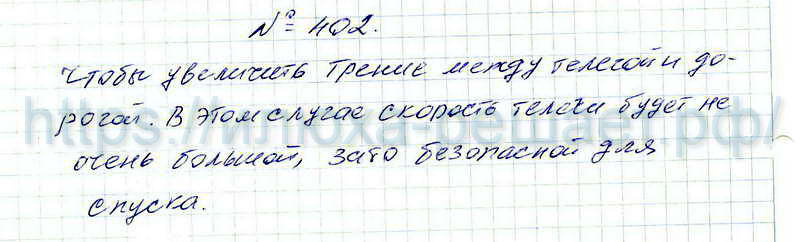 № 402.
Чтобы увеличить трение между телегой и до-
рогой. В этом случае скорость телеги будет не
очень большой, зато безопасной для
спуска.